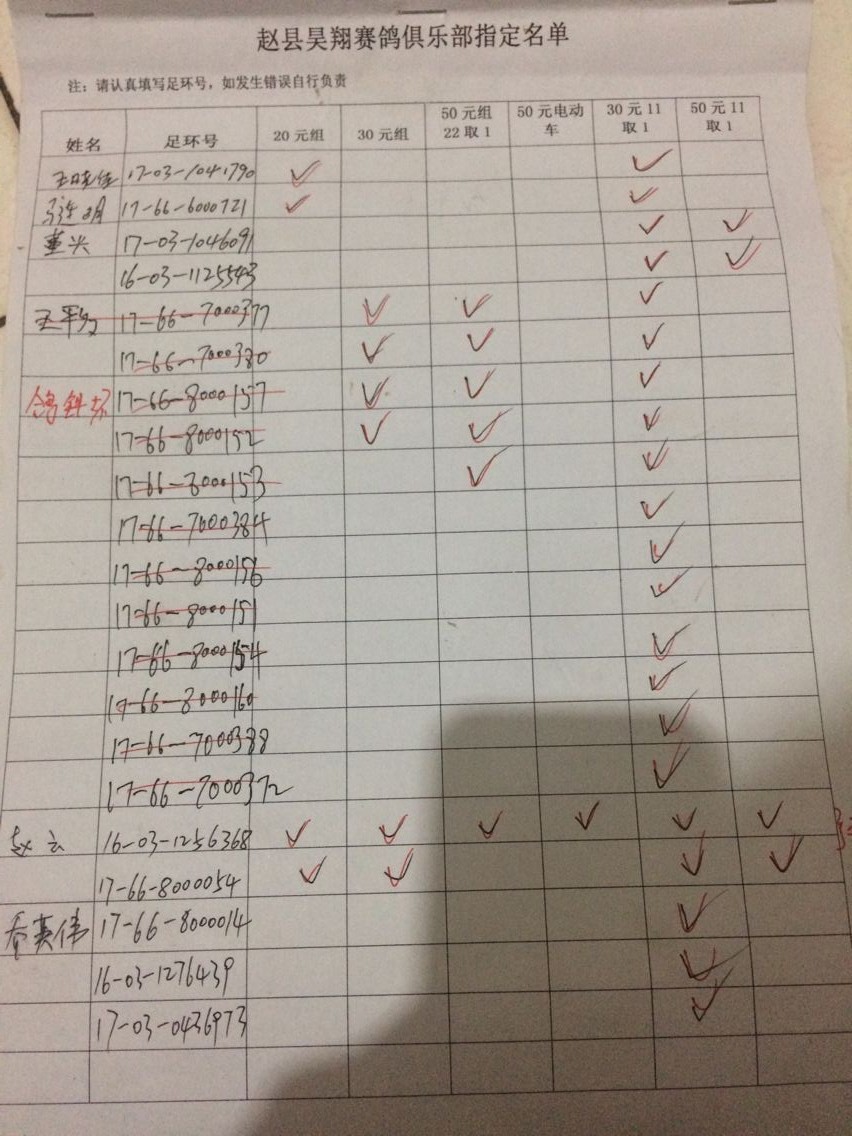 赵县昊翔赛鸽俱乐部指定名单
注：请认真填写足环号，如发生错误自行负责
姓名 足环号 20元组 30元组 50元组22取1 50元电动车 30元11取1 50元11取1
17-03-1041790 ✓ ✓
17-66-6000721 ✓ ✓
董兴 17-03-1046091 ✓ ✓
16-03-1125543 ✓ ✓
17-66-7000377 ✓ ✓ ✓
17-66-7000380 ✓ ✓ ✓
17-66-8000157 ✓ ✓ ✓
17-66-8000152 ✓ ✓ ✓
17-66-8000153 ✓ ✓
17-66-7000384 ✓
17-66-8000156 ✓
17-66-8000151 ✓
17-66-8000154 ✓
17-66-8000160 ✓
17-66-7000388 ✓
17-66-7000372 ✓
赵云 16-03-1256368 ✓ ✓ ✓ ✓ ✓ ✓
17-66-8000054 ✓ ✓ ✓ ✓
17-66-8000014 ✓
16-03-1276439 ✓
17-03-0436973 ✓